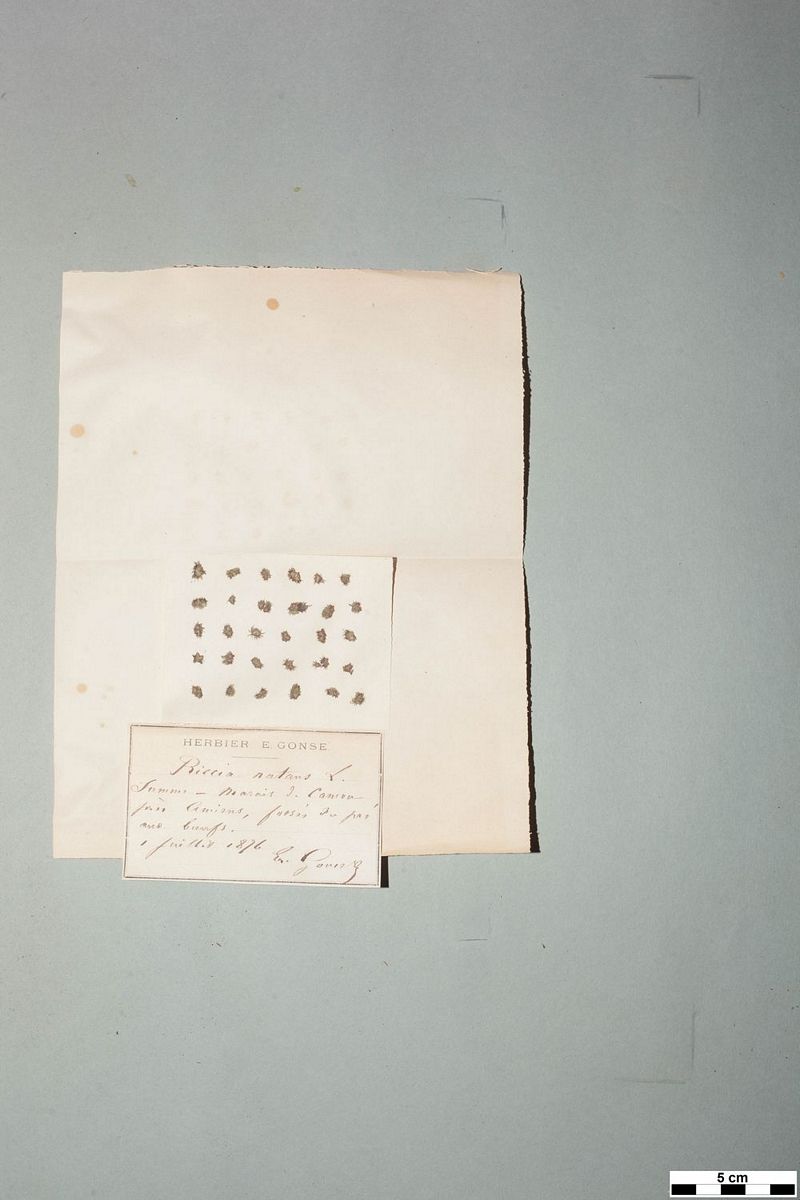 HERBIER E. GONSE.
Riccia natans L.
Somme – Marais de Camon
près Amiens, fossés du pré
aux bœufs.
1 Juillet 1876 E. Gonse
5 cm